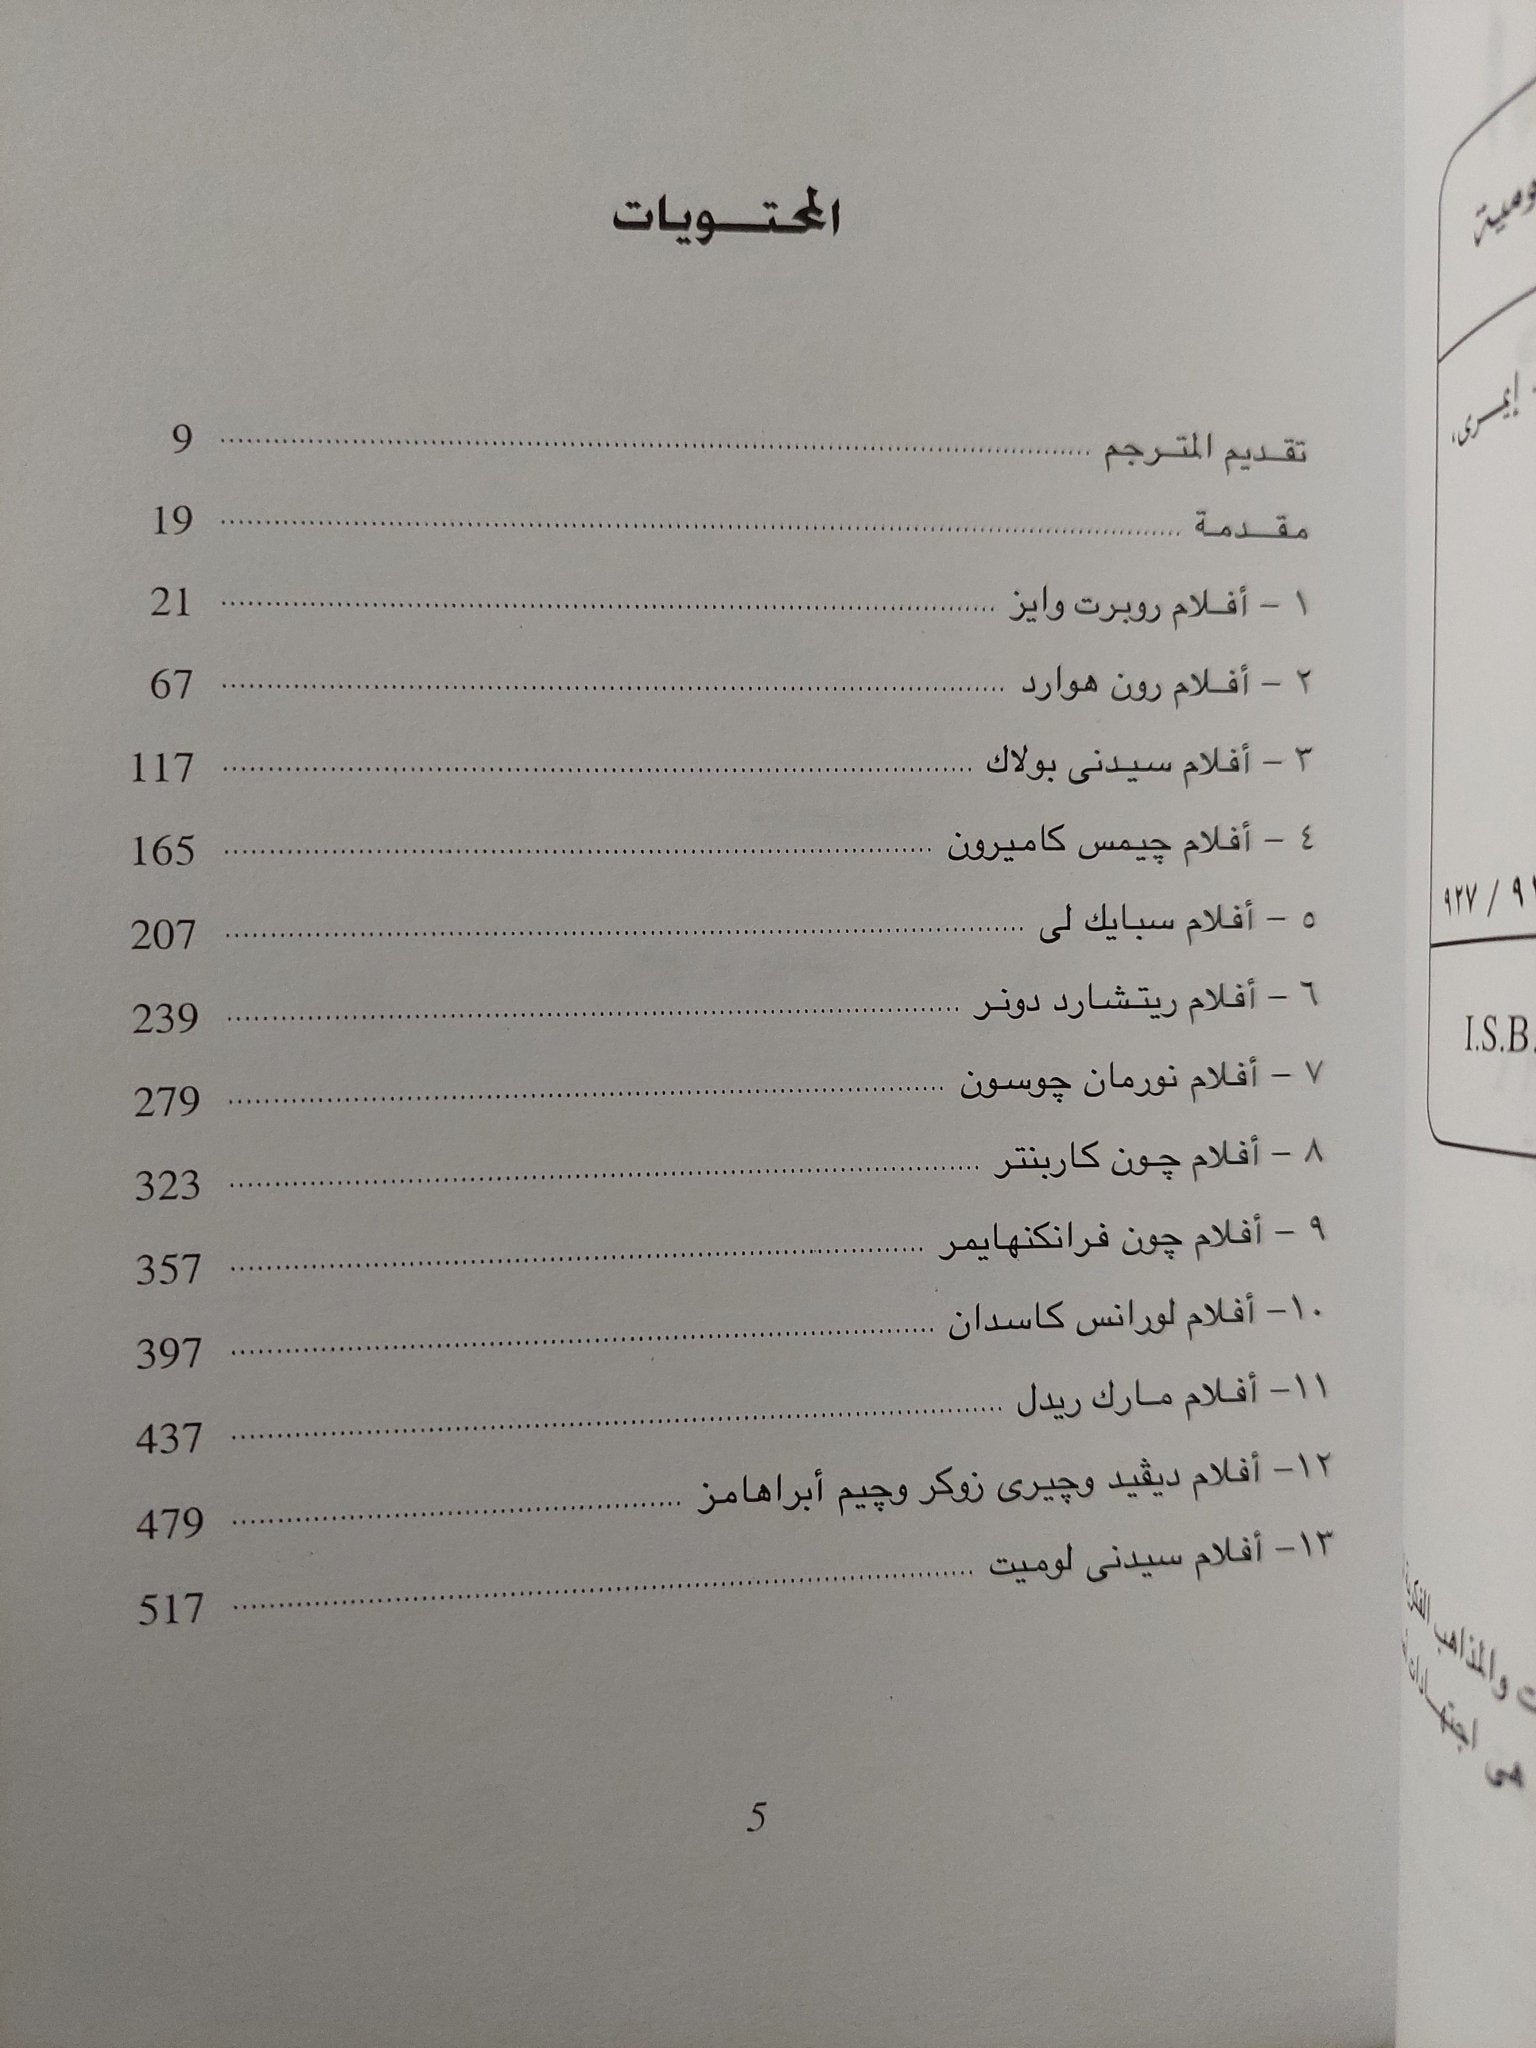 المحتويات
تقديم المترجم 9
مقدمة 19
١ - أفلام روبرت وايز 21
٢ - أفلام رون هوارد 67
٣ - أفلام سيدنى بولاك 117
٤ - أفلام چيمس كاميرون 165
٥ - أفلام سبايك لى 207
٦ - أفلام ريتشارد دونر 239
٧ - أفلام نورمان چوسون 279
٨ - أفلام چون كاربنتر 323
٩ - أفلام چون فرانكنهايمر 357
١٠- أفلام لورانس كاسدان 397
١١- أفلام مارك ريدل 437
١٢- أفلام ديڤيد وچيرى زوكر وچيم أبراهامز 479
١٣- أفلام سيدنى لوميت 517
5
إيمرى،
٩٢٧ /
I.S.B.
والمذاهب
هى